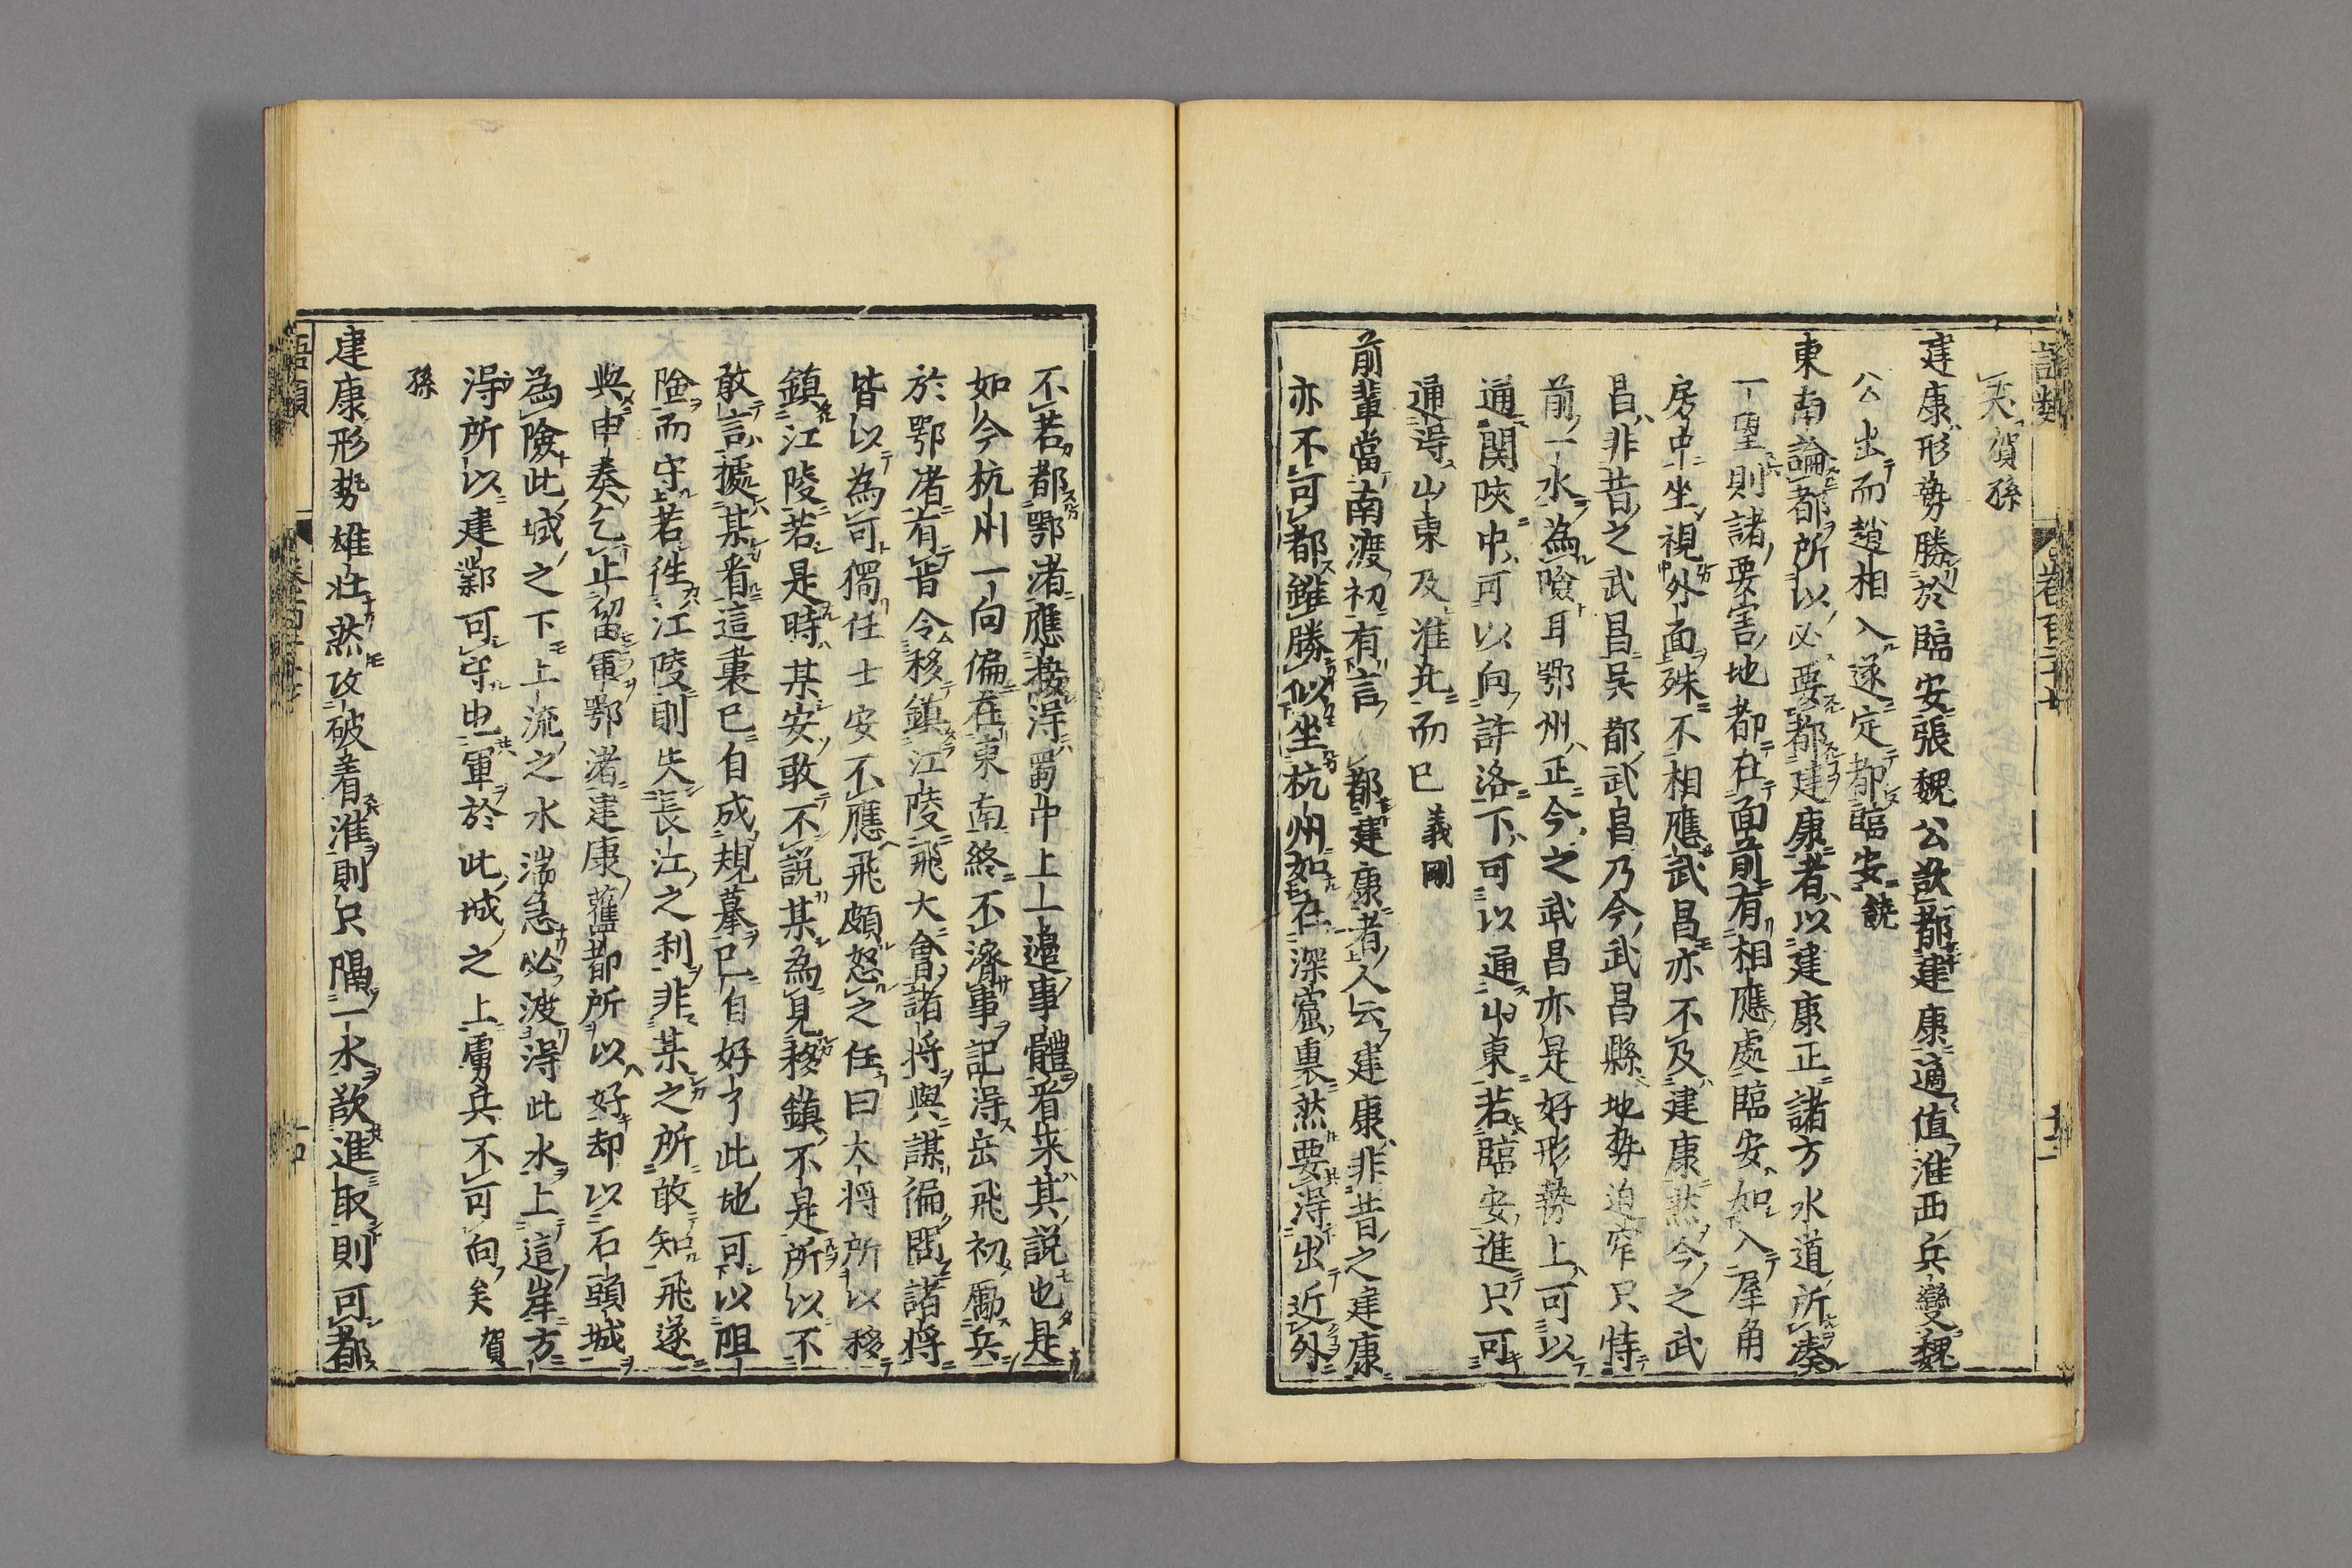 矣賀孫
建康形勢勝於臨安張魏公欲都建康適值淮西兵變魏
公出而趙相入遂定都臨安饒
東南論都所以必要都建康者以建康正諸方水道所湊
一望則諸要害地都在面前有相應處臨安如入屋角
房中坐視外面殊不相應武昌亦不及建康然今之武
昌非昔之武昌吳都武昌乃今武昌縣地勢迫窄只恃
前一水為險耳鄂州正今之武昌亦是好形勢上可以
通関陝中可以向許洛下可以通山東若臨安進只可
通得山東及淮北而已義剛
前輩當南渡初有言都建康者人云建康非昔之建康
亦不可都雖勝似坐杭州如在深窟裏然要得出近外
不若都鄂渚應接得蜀中上一邊事體看来其説也是
如今杭州一向偏在東南終不濟事記得岳飛初勵兵
於鄂渚有旨令移鎮江陵飛大會諸将與謀徧問諸将
皆以為可獨任士安不應飛頗怒之任曰大将所以移
鎮江陵若是時某安敢不説某為見移鎮不是所以不
敢言據某看這裏已自成規摹已自好了此地可以阻
險而守若徃江陵則失長江之利非某之所敢知飛遂
與申奏乞止留軍鄂渚建康舊都所以好却以石頭城
為險此城之下上流之水湍急必渡得此水上這岸方
得所以建鄴可守屯軍於此城之上虜兵不可向矣賀
孫
建康形勢雄壯然攻破着淮則只隔一水欲進取則可都